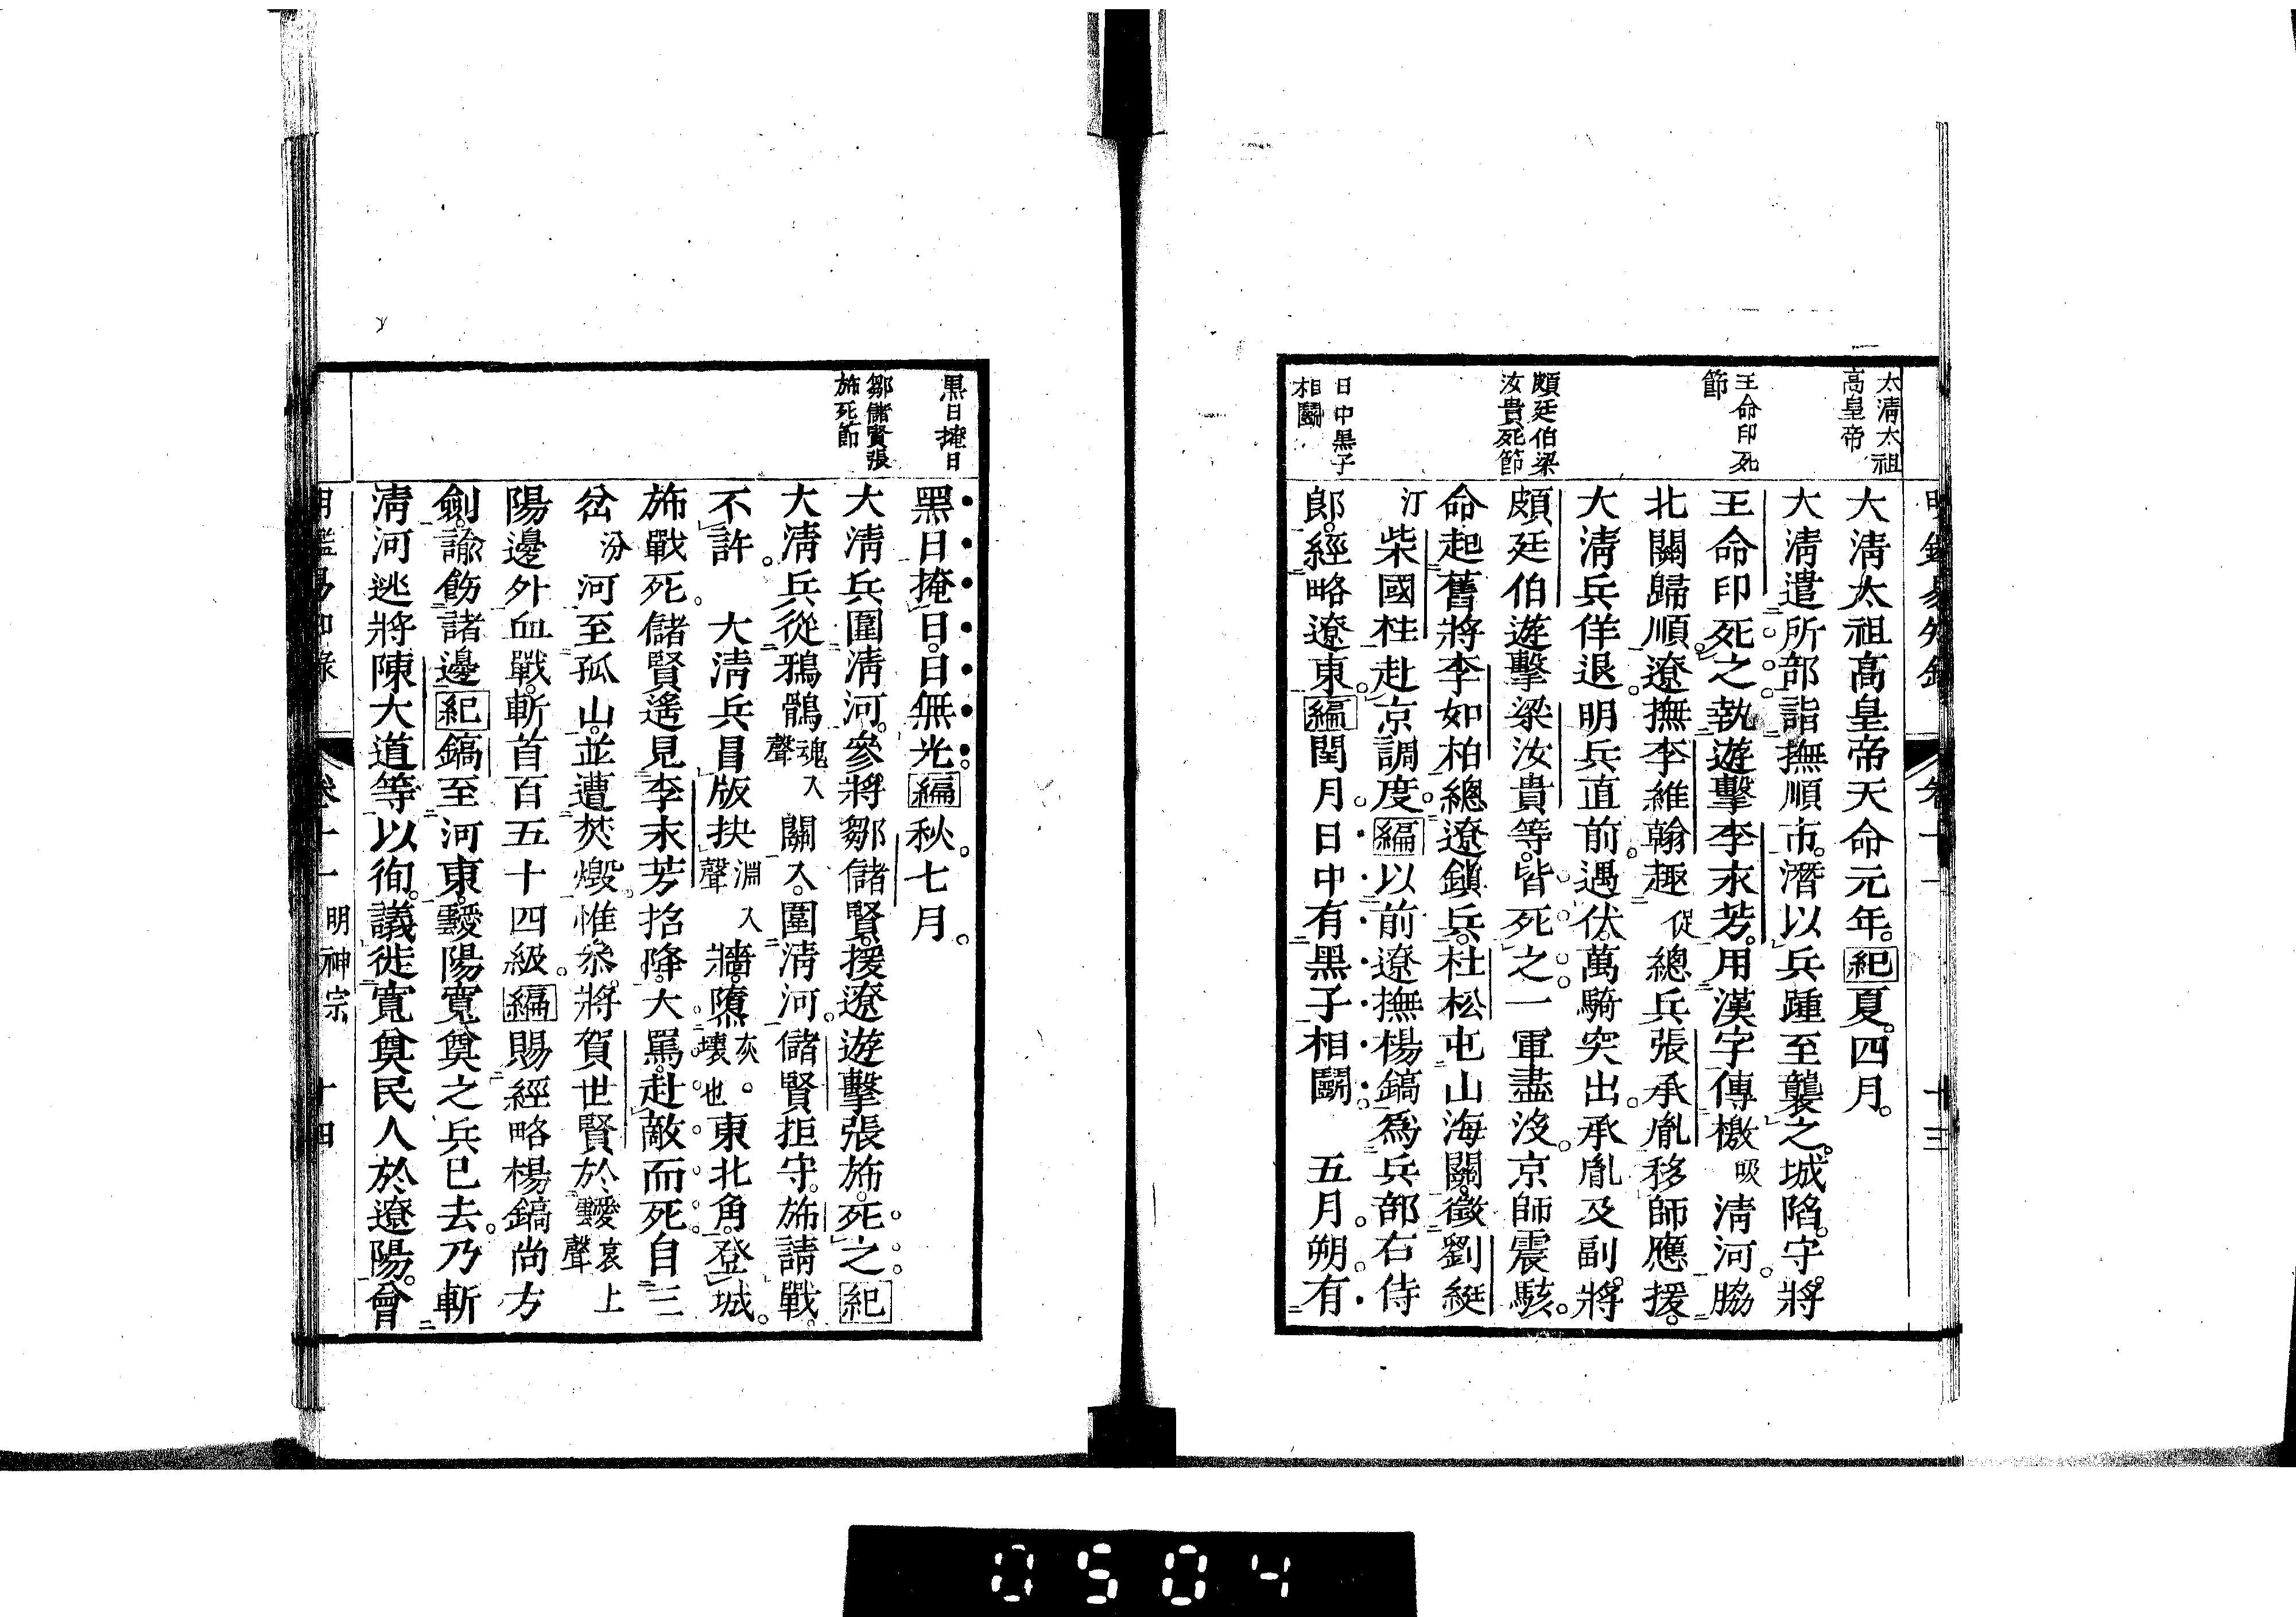 太清太祖
高皇帝
王命印死
節
頗廷伯梁
汝貴死節
日中黒子
相鬭
大清太祖高皇帝天命元年。紀夏。四月。
大清遣所部詣撫順市。潛以兵踵至襲之。城陷。守將
王命印死之。執遊擊李永芳。用漢字傳檄吸清河。脇
北關歸順。遼撫李維翰趣促總兵張承胤移師應援。
大清兵佯退。明兵直前。遇伏萬騎突出。承胤及副將
頗廷伯遊擊梁汝貴等。皆死之。一軍盡沒。京師震駭。
命起舊將李如柏總遼鎮兵。杜松屯山海關。徵劉綎
汀柴國柱赴京調度。編以前遼撫楊鎬爲兵部右侍
郎。經略遼東。編閏月。日中有黑子相鬭 五月。朔。有
黒日掩日
鄒儲賢張
斾死節
黑日掩日。日無光。編秋。七月。
大清兵圍清河。參將鄒儲賢。援遼遊擊張斾。死之紀
大清兵從鴉鶻魂入聲關入。圍清河。儲賢拒守。斾請戰。
不許。 大清兵冒版抉淵入聲牆。隳灰。壞也。東北角。登城。
斾戰死。儲賢遙見李永芳招降。大罵。赴敵而死。自三
岔汊河至孤山。並遭焚燬。惟叅將賀世賢於靉哀上聲
陽邊外血戰。斬首百五十四級。編賜經略楊鎬尚方
劍。諭飭諸邊紀鎬至河東。靉陽寬奠之兵已去。乃斬
清河逃將陳大道等以徇。議徙寬奠民人於遼陽。會
明神宗 十四